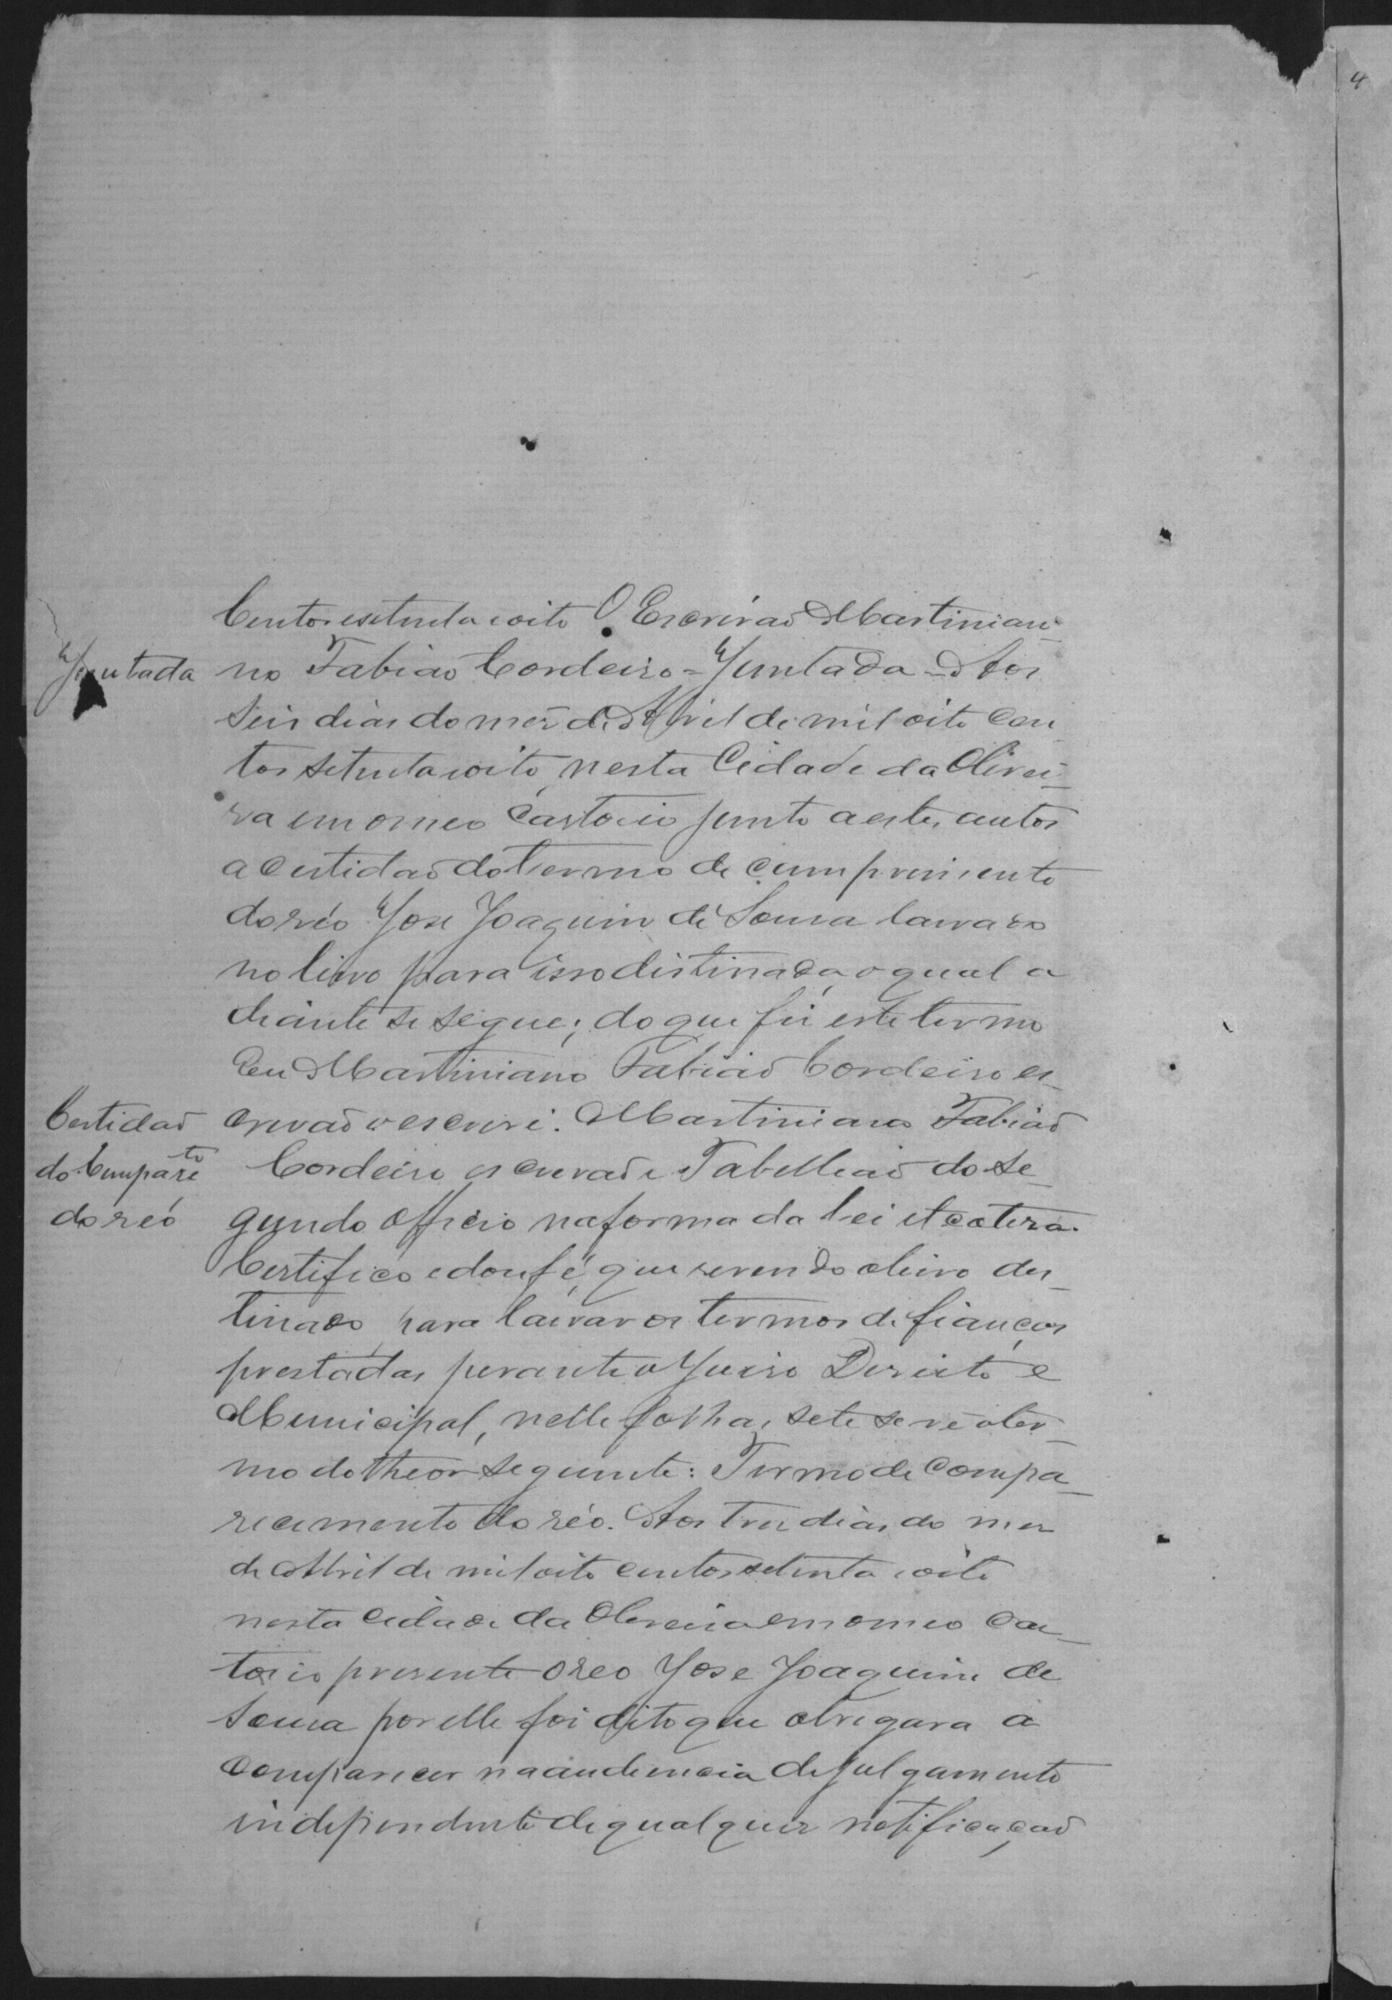 4
Centos setenta e oito O Escrivão Martinian-
Juntada
no Fabião Cordeiro = Juntada = Aos
seis dias do mes de Abril de mil oito cen
tos setenta e oito, nesta Cidade da Olivei-
ra em o meo Cartorio junto a estes autos
a certidão do termo de cumprimento
do réo José Joaquim de Sousa lavrado
no livro para isso distinado, o qual a
diante se segue; do que fiz este termo
Eu Martiniano Fabião Cordeiro es-
Certidão
do Compare to
do réo
crivão o escrevi. Martiniano Fabião
Cordeiro escrivão e Tabellião do Se-
gundo Officio na forma da Lei etcetera.
Certifico e dou fé, que revendo o livro des-
tinado para lavrar os termos de fianças
prestadas perante o Juizo Direito e
Municipal, nelle folhas sete se vê o ter-
mo do theor seguinte: Termo de Compa-
recimento do réo. Aos tres dias do mes
de Abril de mil oito centos setenta e oito
nesta cidade da Oliveira em o meo Car-
torio presente o reo José Joaquim de
Sousa por elle foi dito que obrigava a
comparecer na audiencia de julgamento
independente de qualquer notificação